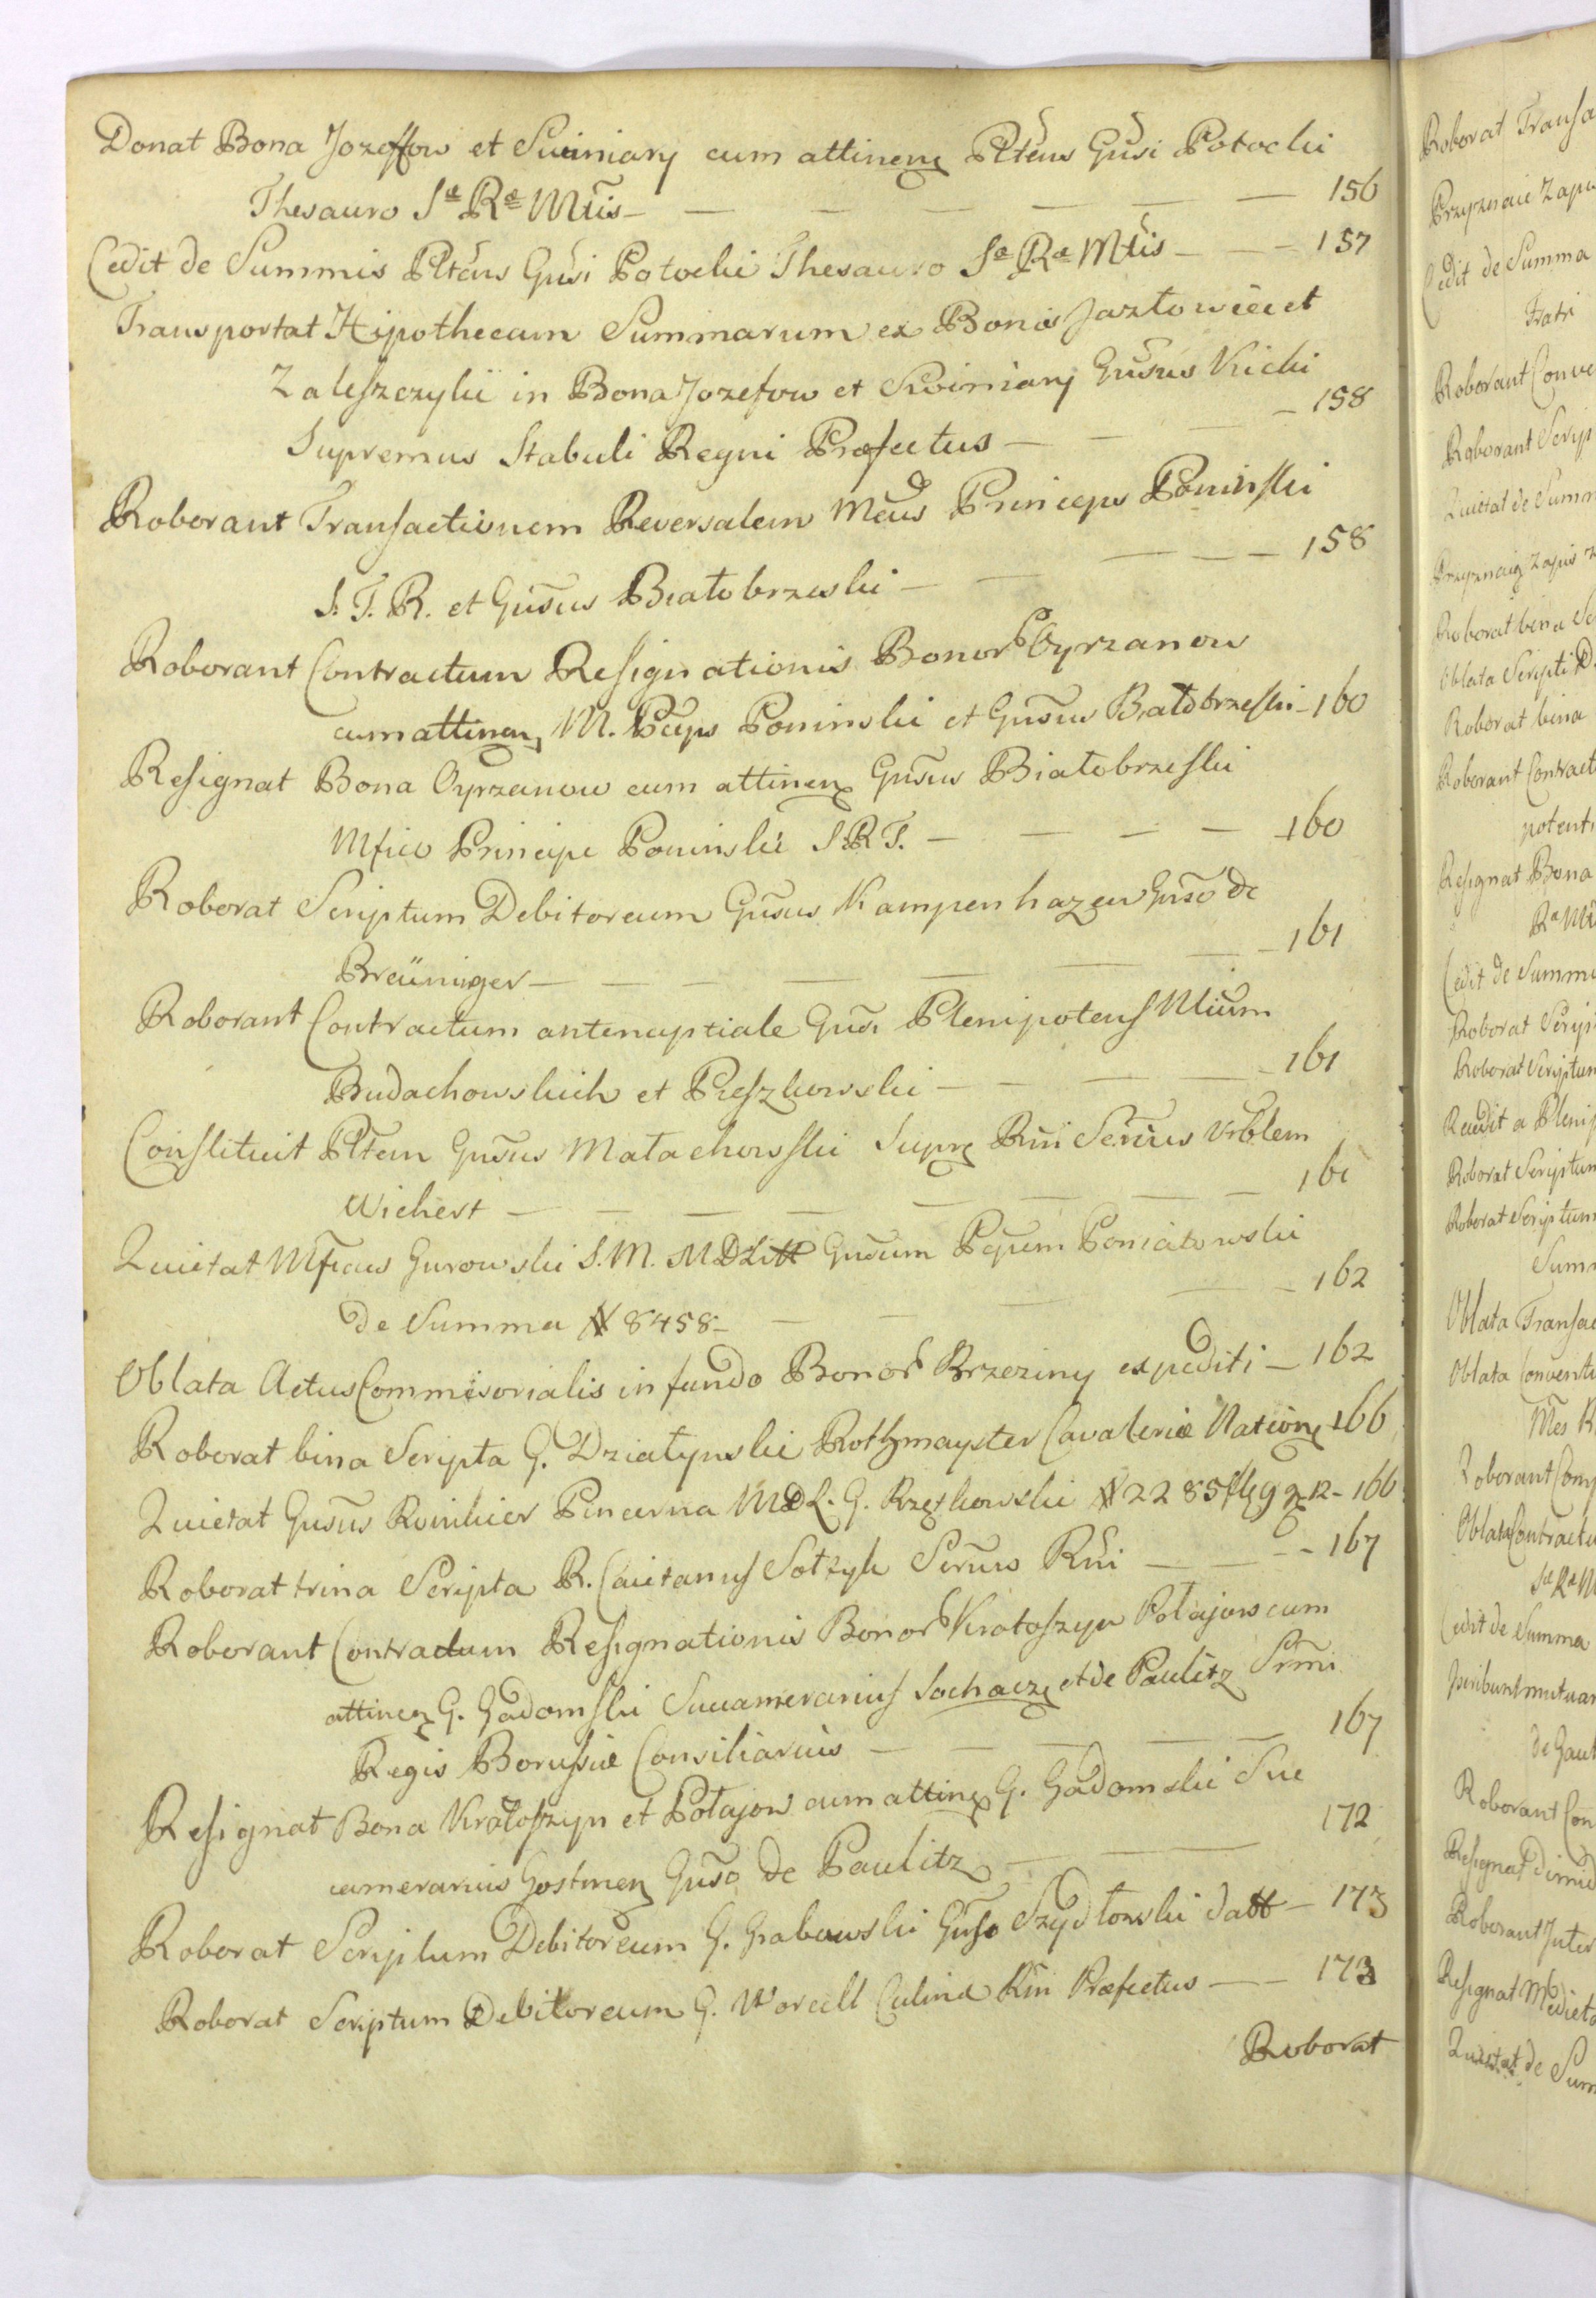 Donat Bona Jozeffow et Swiniary cum attinen Pltens Gnsi Potocki
Thesauro Sæ Ræ Mtis — 156
Cedit de Summis Pltens Gnsi Potocki Thesauro Sæ Ræ Mtis — 157
Transportat Hipothecam Summarum ex Bonis Jazłowiec et
Zaleszczyki in Bona Jozefow et Swiniary Gnsus Kicki
Supremus Stabuli Regni Præfectus — 158
Roborant Transactionem Reversalem Mcus Princeps Poninski
S. T. R. et Gnsus Białobrzeski — 158
Roborant Contractum Resignationis Bonor Oyrzanow
cum attinen M. Pceps Poninski et Gnsus Białobrzeski — 160
Resignat Bona Oyrzanow cum attinen Gnsus Białobrzeski
Mfico Principi Poninski S. R. T. — 160
Roborat Scriptum Debitoreum Gnsus Kampenhazen Gnso de
Breüniger — 161
Roborant Contractum antenuptiale Gnsi Plenipotens Nlium
Budachowskich et Preszkowski — 161
Constituit Pltem Gnsus Małachowski Supr Rni Scrius Nblem
Wichert — 161
Quietat Mficus Gurowski S. M. M D Litt Gnsum Pcpem Poniatowski
de Summa # 8458 — 162
Oblata Actus Commisorialis in fundo Bonor Brzeziny expediti — 162
Roborat bina Scripta G. Działynski Rothmayster Cavaleriæ Nation 166
Quietat Gnsus Roinkier Pincerna M D L. G. Rzeszkowski # 2285 fl 9 g 12 — 166
Roborat trina Scripta R. Caietanus Sołtyk Scrius Rni — 167
Roborant Contractum Resignationis Bonor Kratoszyn Połajow cum
attinen G. Gadomski Succamerarius Sochacz et de Paulitz Srmi
Regis Borussiæ Consiliarius — 167
Resignat Bona Kratoszyn et Połajow cum attinen G. Gadomski Suc
camerarius Gostinen Gnso de Paulitz — 172
Roborat Scriptum Debitoreum G. Grabowski Gnso Szydłowski datt — 173
Roborat Scriptum Debitoreum G. Worcell Culinæ Rni Præfectus — 173
Roborat
Roborat Transa
Przyznaie Zapis
Cedit de Summa
Fratri
Roborant Conve
Roborant Scrip
Quietat de Summ
Przyznaią Zapis
Roborat bina Sc
Oblata Scripti D
Roborat bina
Roborant Contract
potenti
Resignat Bona
Cedit de Summ
Roborat Scrip
Roborat Scriptum
Roborat Scriptum
Roborat Scriptum
Summ
Oblata Transac
Oblata Conventi
Oblata Contractu
Cedit de Summa
Roborant Con
Resignat dimid
Roborant Inter
Resignat Medieta
Quietat de Sum